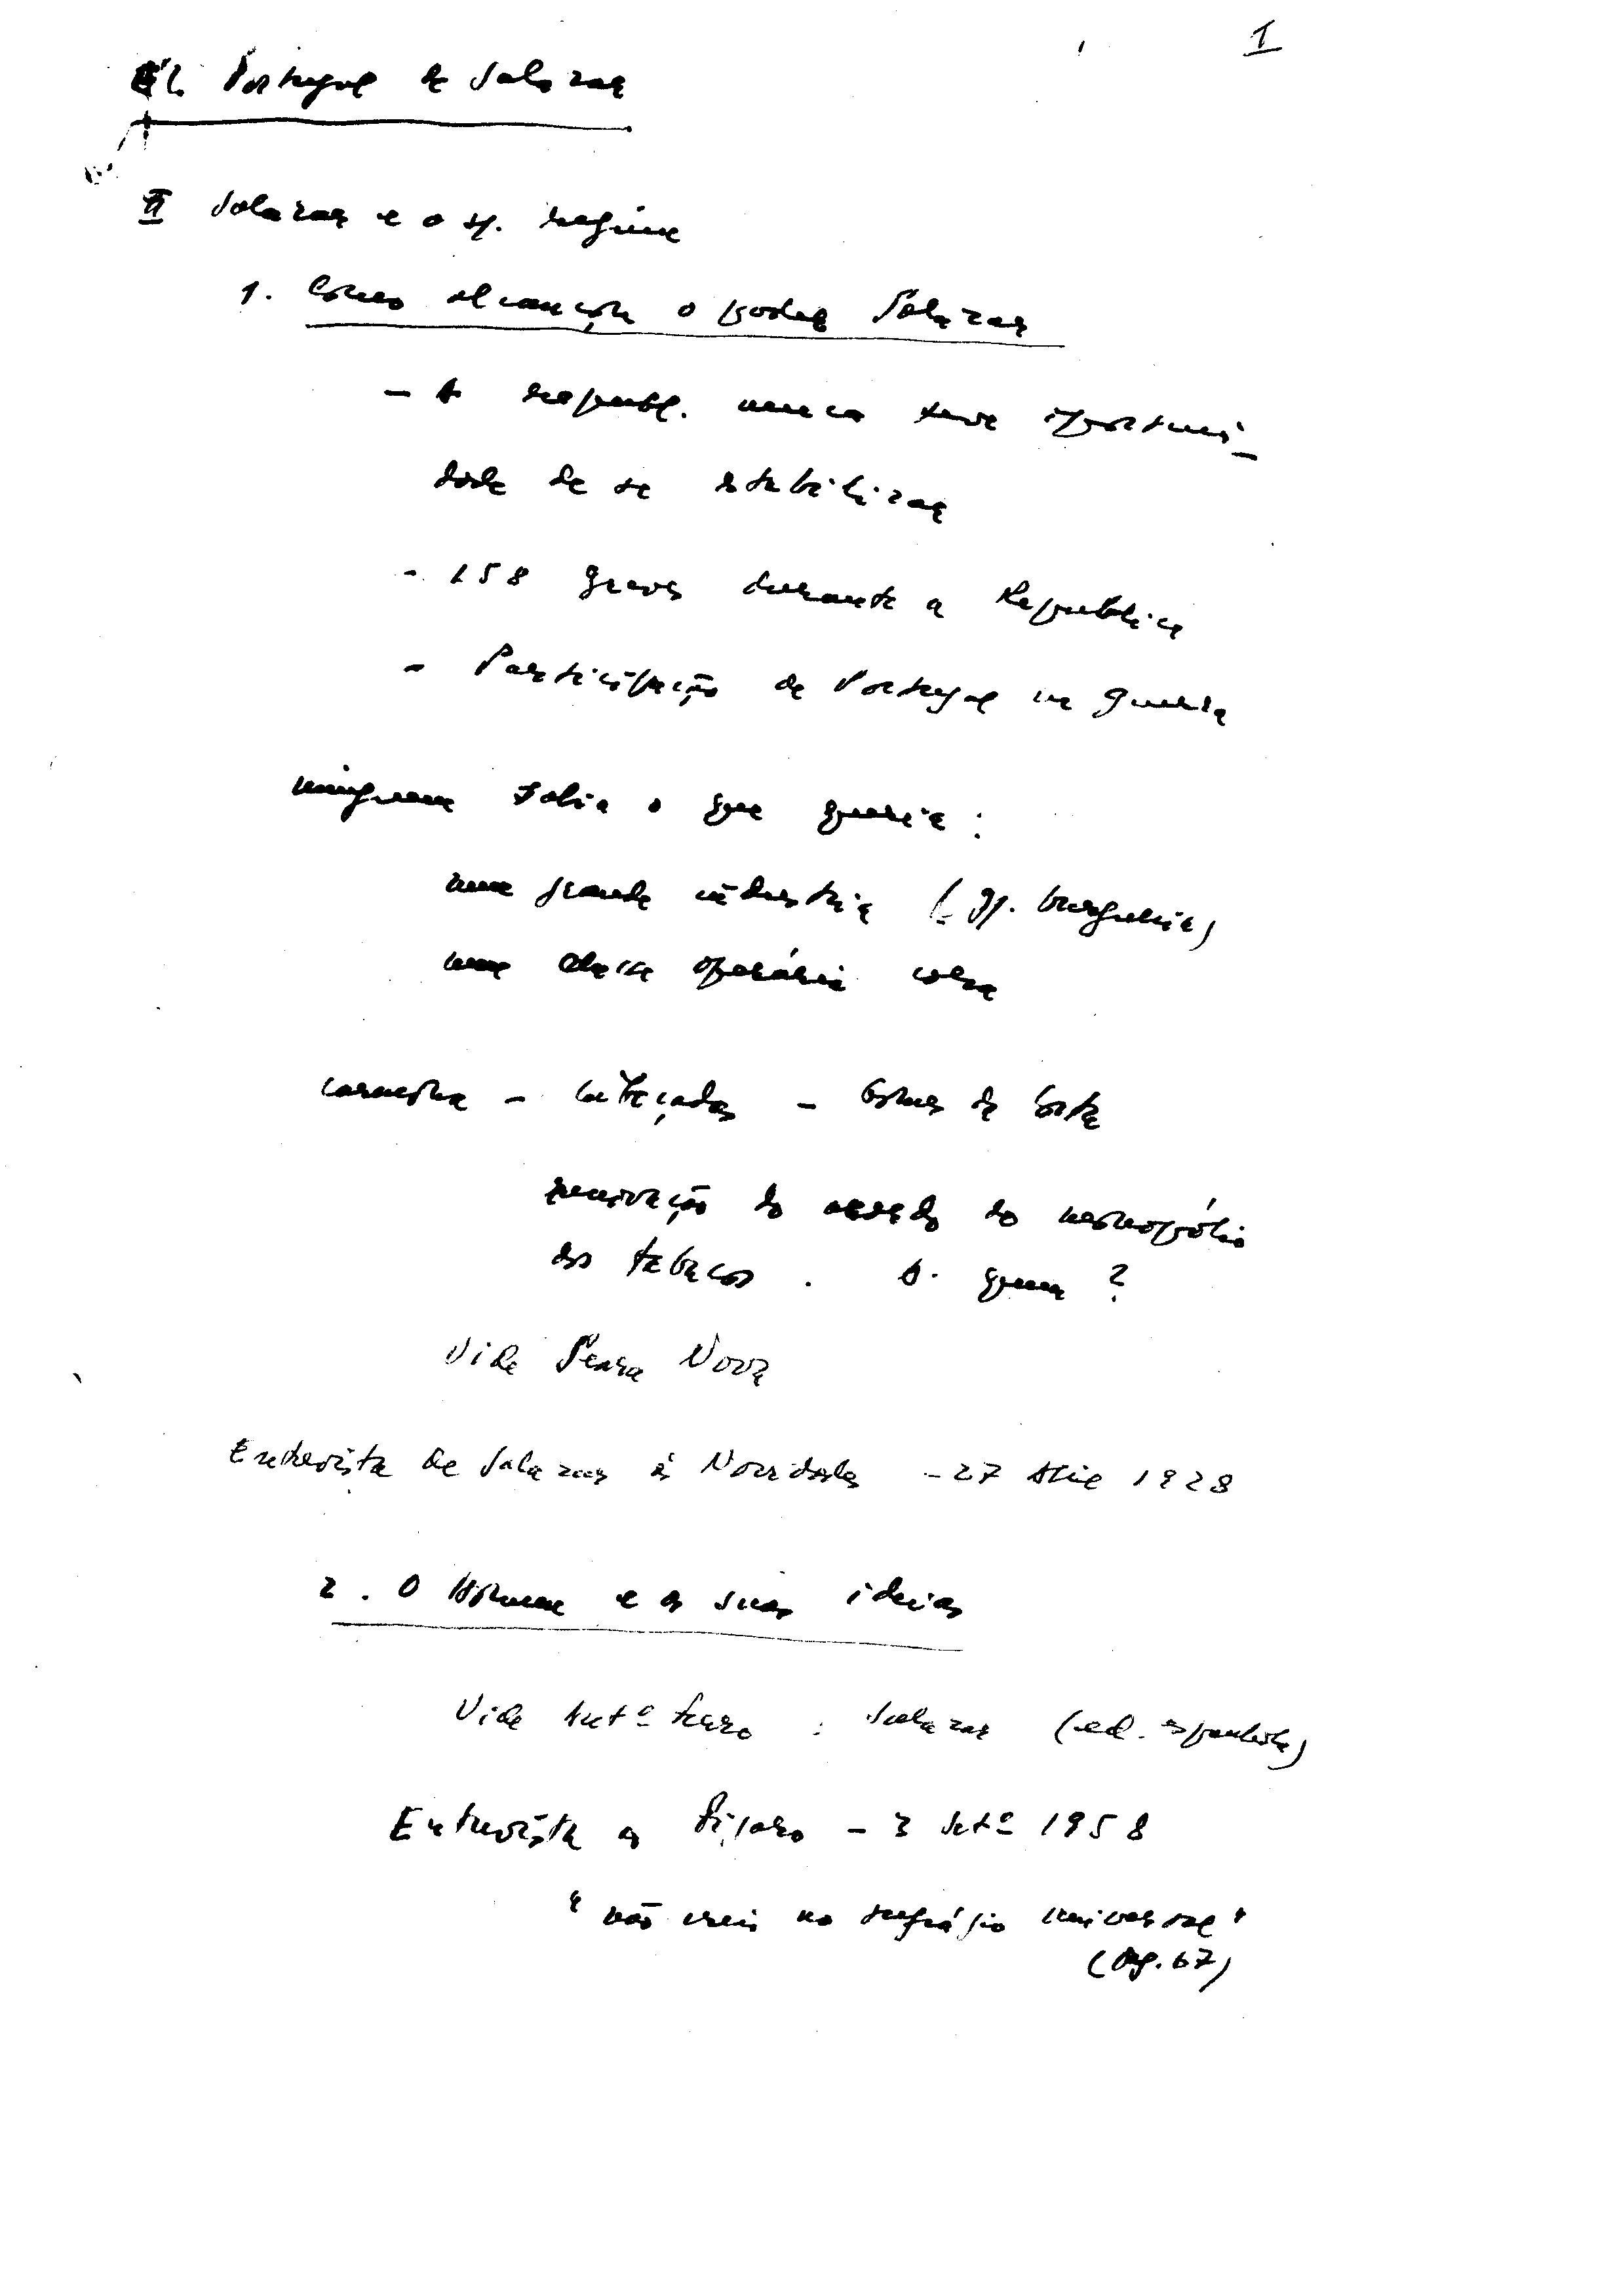 I
Portugal de Salazar
II Salazar e o s/. regime
1. Como alcançou o poder Salazar
- A republ. nunca teve oportuni-
dade de se estabilizar
- 158 greves durante a República
- Participação de Portugal na guerra
ninguem sabia o que queria:
uma grande indústria (gr. burguesia)
uma classe operária
Carmona - Cabeçadas - Gomes da Costa
renovação do acordo do monopólio
dos tabacos. A quem?
Vide Seara Nova
Entrevista de Salazar às Novidades - 27 Abril 1928
2. O Homem e as suas ideias
Vide Antº Ferro: Salazar (ed. espanhola)
Entrevista ao Figaro - 3 Setº 1958
"não creio no sufrágio universal"
(Pág. 67)